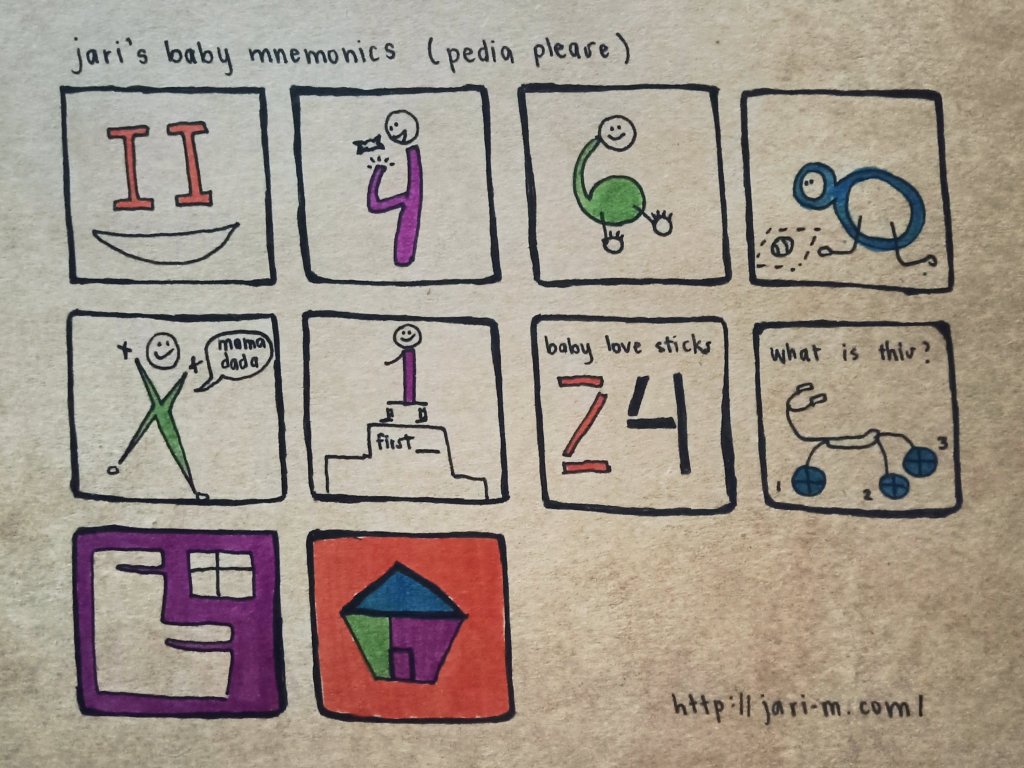 jari's baby mnemonics (pedia please)
mama
dada
first _
baby love sticks
24
what is this?
3
1
2
http://jari-m.com/